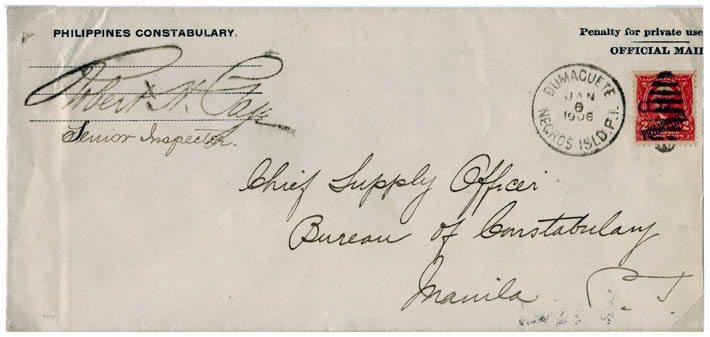 PHILIPPINES CONSTABULARY.
Penalty for private use
OFFICIAL MAIL
Robert H.
Senior Inspector.
DUMAGUETE
JAN
6
1906
NEGROS ISLD. P.I.
2 2
PHILIPPINES
Chief Supply Officer
Bureau of Constabulary
Manila P. I.